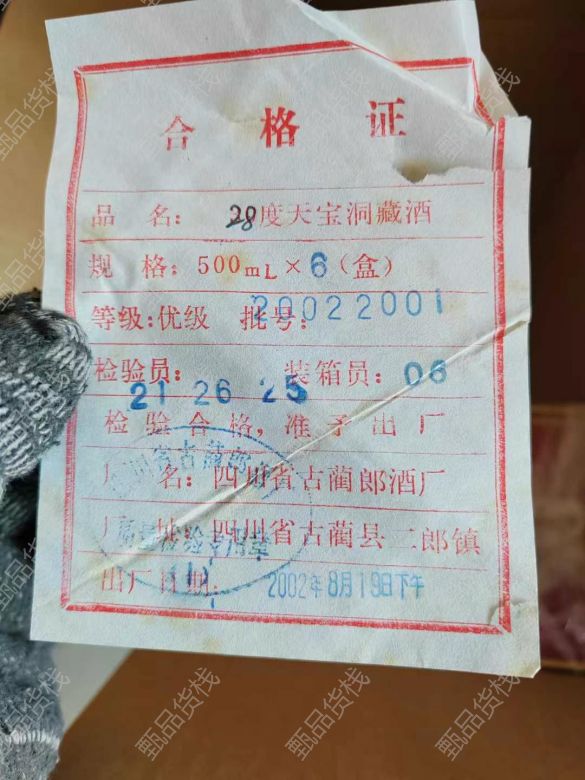 合格证
品 名: 28度天宝洞藏酒
规 格: 500mL×6(盒)
等级:优级 批号: 20022001
检验员: 21 26 25 装箱员: 06
检验合格,准予出厂
厂 名: 四川省古蔺郎酒厂
厂 址: 四川省古蔺县二郎镇
出厂日期: 2002年8月19日下午
质量检验专用章
甄品货栈